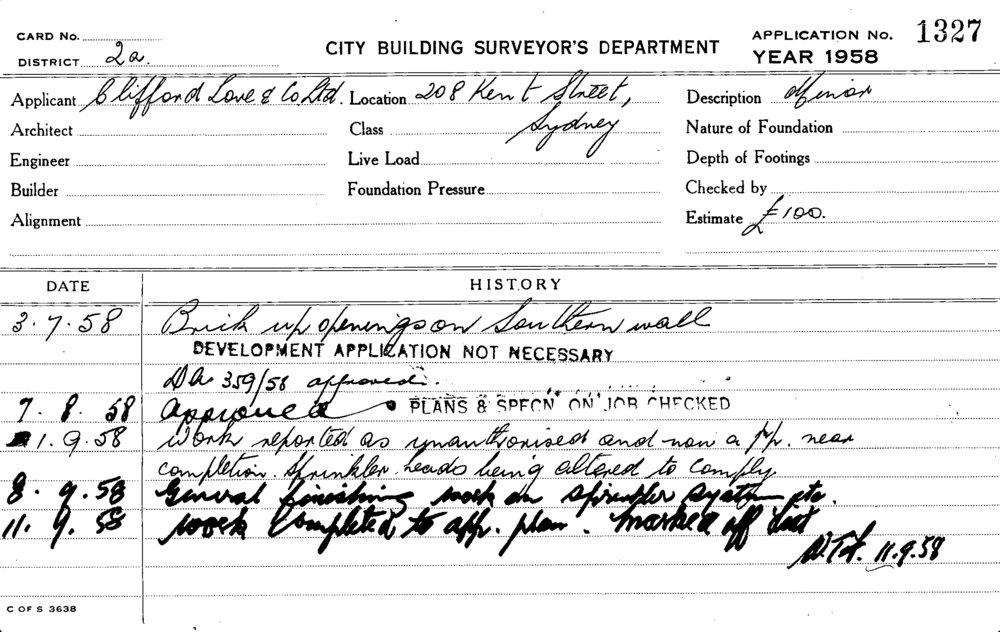 CARD No.
DISTRICT 2a.
CITY BUILDING SURVEYOR'S DEPARTMENT
APPLICATION No. 1327
YEAR 1958
Applicant Clifford Love & Co Ltd. Location 208 Kent Street, Description Minor
Architect Class Sydney Nature of Foundation
Engineer Live Load Depth of Footings
Builder Foundation Pressure Checked by
Alignment Estimate £100.
DATE HISTORY
3.7.58 Brick up openings on Southern wall
DEVELOPMENT APPLICATION NOT NECESSARY
DA 359/58 approved.
7.8.58 Approved PLANS & SPECN ON JOB CHECKED
1.9.58 Work reported as unauthorised and now a near
completion. Sprinkler heads being altered to comply
8.9.58 General finishing work on sprinkler system etc.
11.9.58 Work completed to app. plan. Marked off list
11.9.58
C OF S 3638